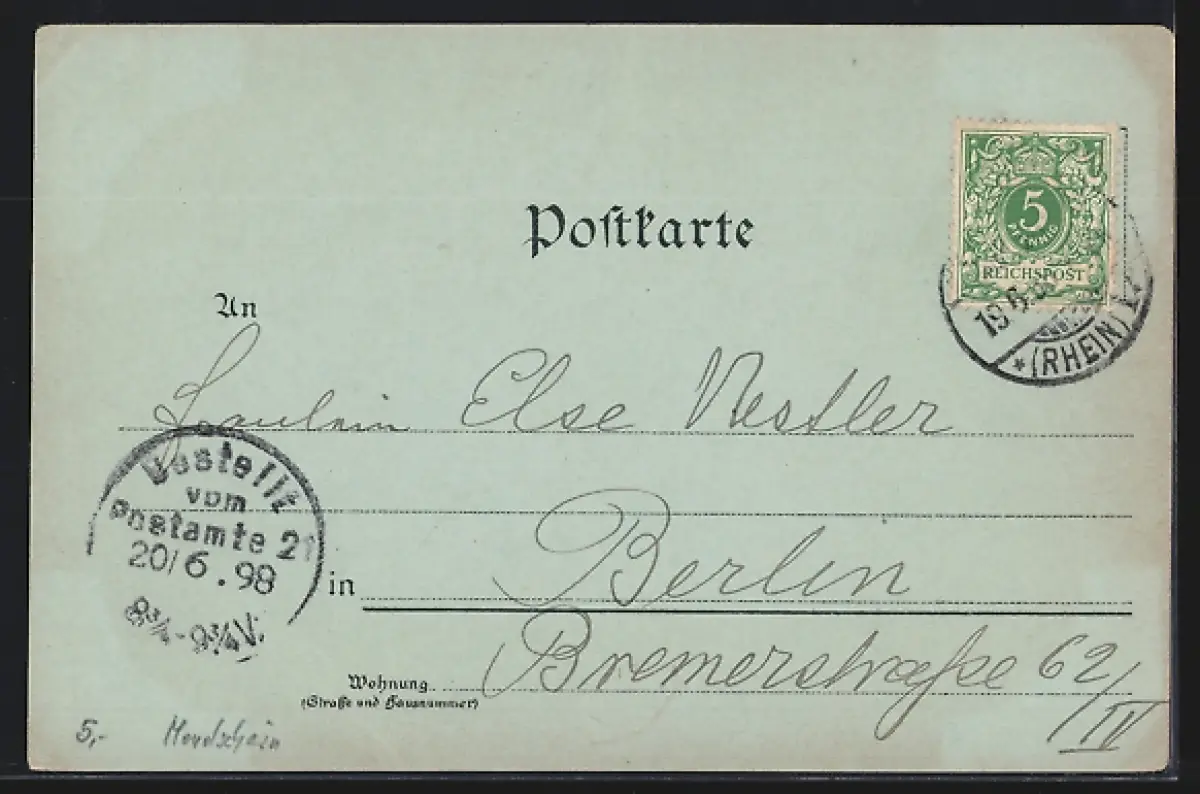 Postkarte
5
PFENNIG
REICHSPOST
19 6
* (RHEIN)
An
Fräulein Else Nestler
Bestellt
vom
Postamte 21
20/6.98
8¾-9¾V.
in Berlin
Wohnung Bremerstraße 62/IV
(Straße und Hausnummer)
5,- Mondschein